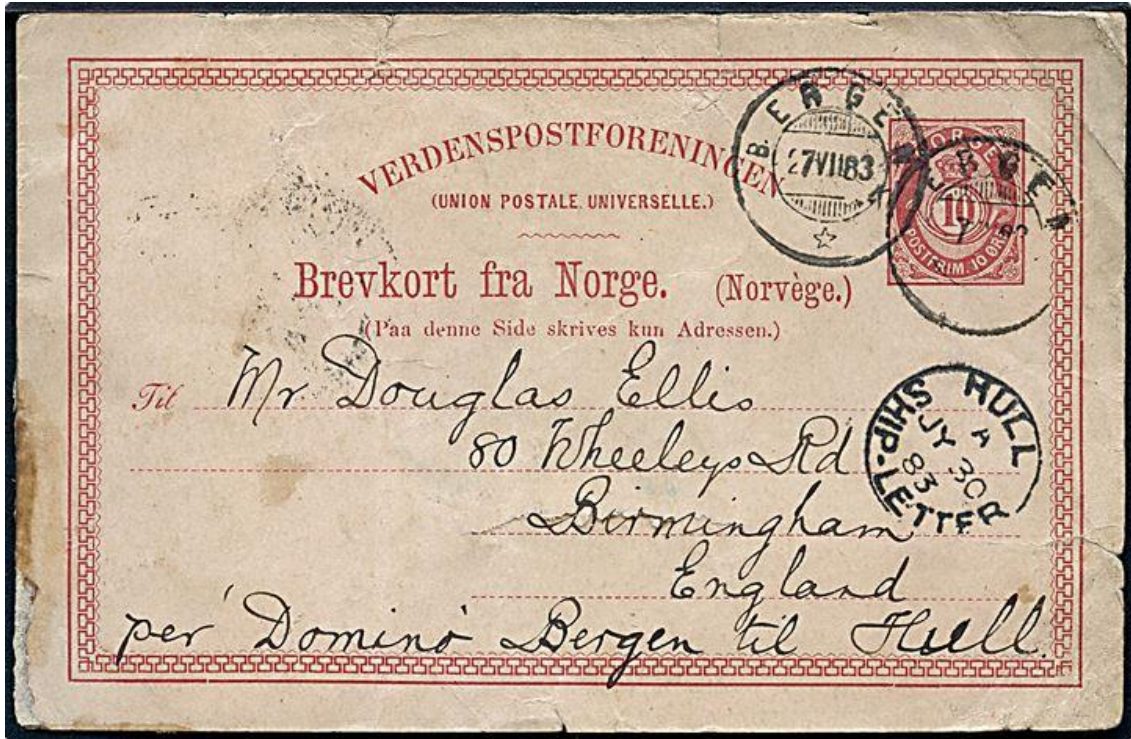 VERDENSPOSTFORENINGEN
(UNION POSTALE UNIVERSELLE.)
Brevkort fra Norge. (Norvège.)
(Paa denne Side skrives kun Adressen.)
BERGEN
27VII83
NORGE
10
POSTFRIM. 10 ØRE
BERGEN
Til Mr Douglas Ellis
80 Wheeleys Rd
Birmingham
England
per "Domino" Bergen til Hull.
HULL
A
JY 30
83
SHIP-LETTER